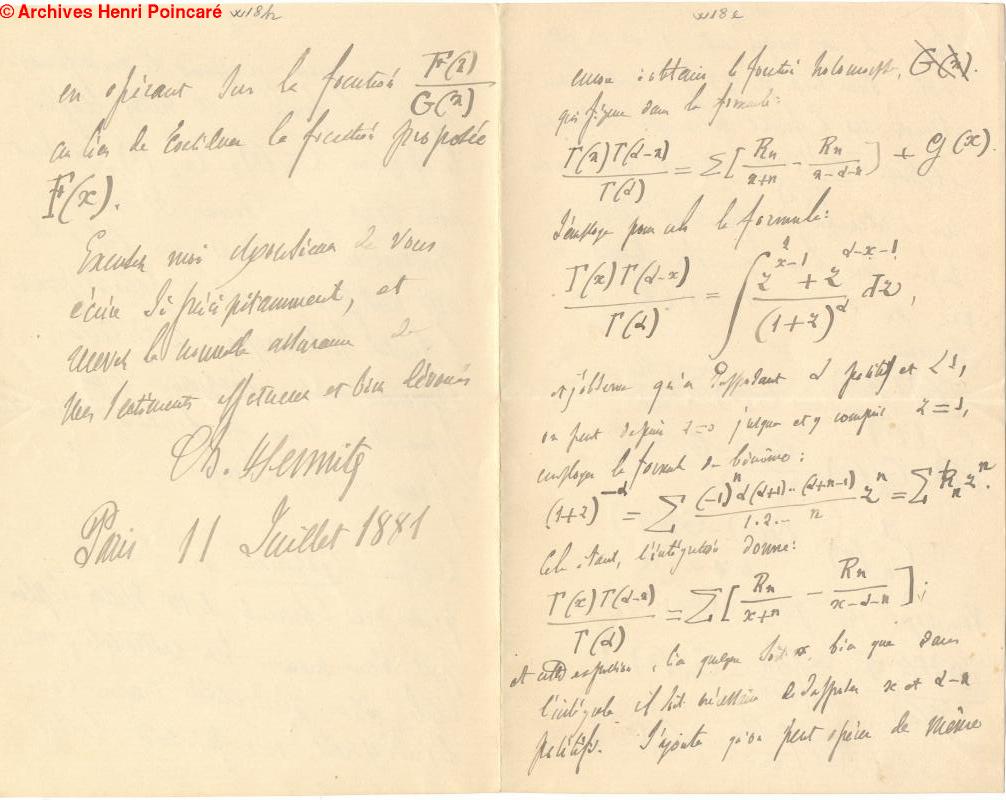 © Archives Henri Poincaré
en opérant sur la fonction F(x)/G(x)
au lieu de la fonction proposée
F(x).
Excusez moi de vous
écrire si précipitamment, et
recevez la nouvelle assurance de
mes sentiments affectueux et bien dévoués
Ch. Hermite
Paris 11 Juillet 1881
obtenir la fonction holomorphe, G(x).
qui figure dans la formule:
Γ(x)Γ(α-x)/Γ(α) = Σ[Rn/x+n - Rn/x-α-n] + G(x).
J'employe pour cela la formule:
Γ(x)Γ(α-x)/Γ(α) = ∫ z^x-1 + z^α-x-1/(1+z)^α dz,
et j'observe qu'en supposant α positif et <1,
on peut depuis z=0 jusque et y compris z=1,
employer la formule du binôme:
(1+z)^-α = Σ (-1)^n α(α+1)..(α+n-1)/1.2... n z^n = Σ Rn z^n.
Cela étant, l'intégration donne:
Γ(x)Γ(α-x)/Γ(α) = Σ[Rn/x+n - Rn/x-α-n];
et cette expression, quelque soit x, bien que dans
l'intégrale il soit nécessaire de supposer x et α-x
positifs. J'ajoute qu'on peut opérer de même